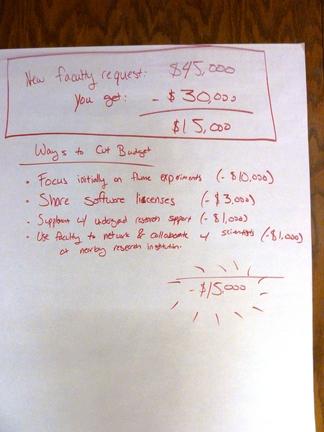 New faculty request: $45,000
You get: - $30,000
$15,000
Ways to Cut Budget
• Focus initially on flume experiments (-$10,000)
• Share software liscenses (-$3,000)
• Supplement w/ undergrad research support (-$1,000)
• Use faculty to network & collaborate w/ scientists (-$1,000)
at nearby research institution.
-$15,000